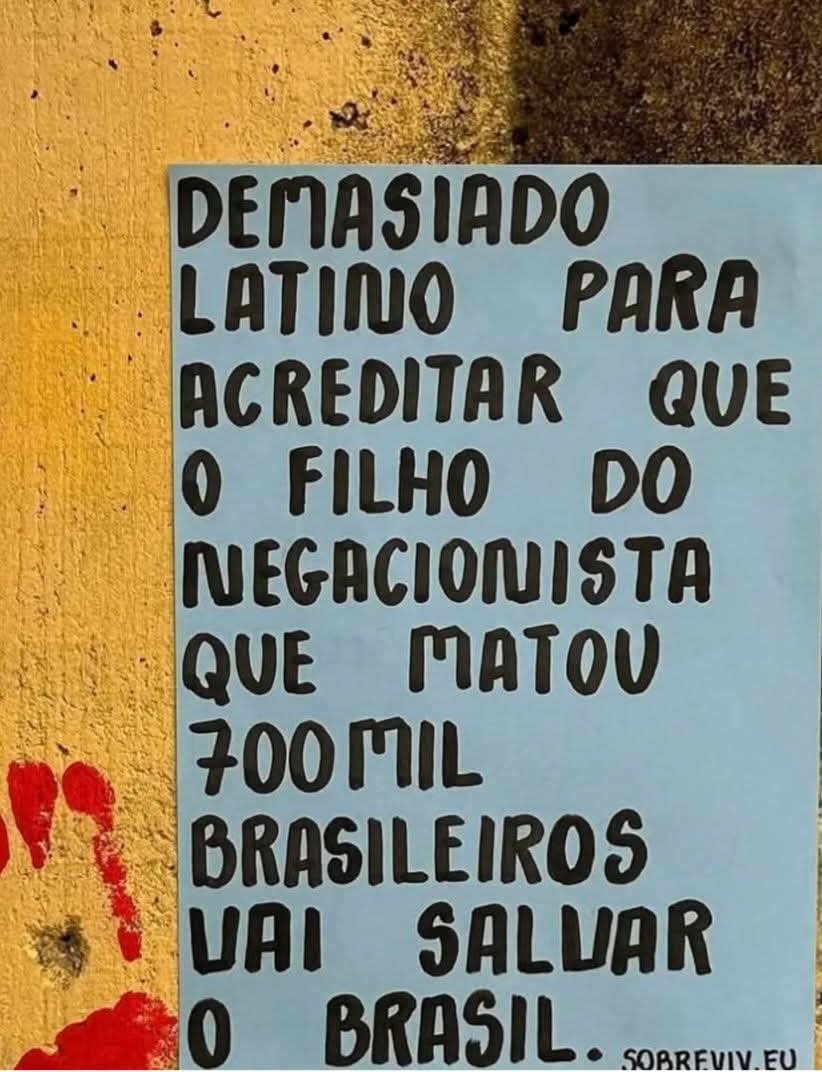 DEMASIADO
LATINO PARA
ACREDITAR QUE
O FILHO DO
NEGACIONISTA
QUE MATOU
700MIL
BRASILEIROS
VAI SALVAR
O BRASIL.
SOBREVIV.EU